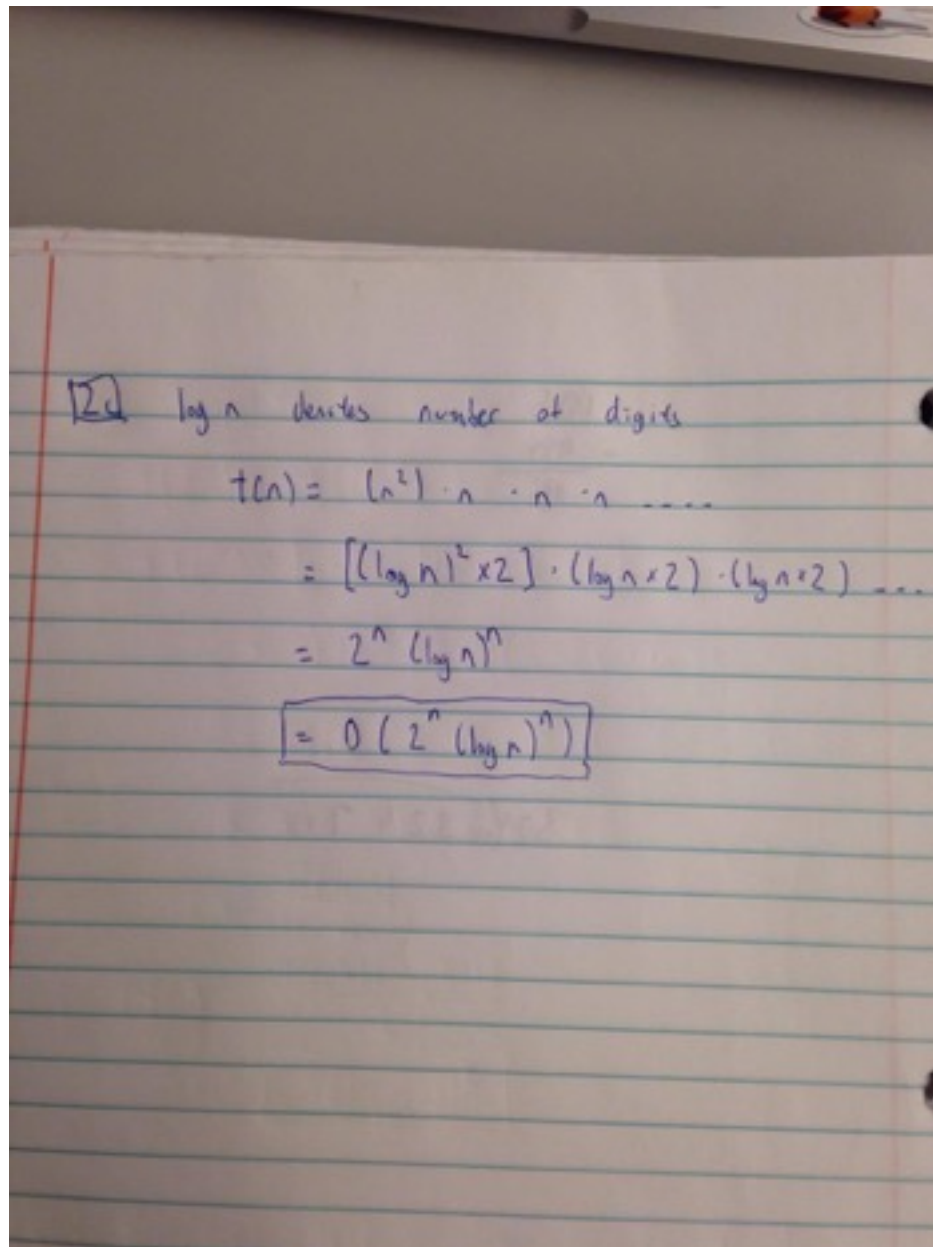 2d log n denotes number of digits
t(n) = (n²) · n · n · n ....
= [(log n)² x2] · (log n x 2) · (log n x 2) ...
= 2ⁿ (log n)ⁿ
= O ( 2ⁿ (log n)ⁿ )